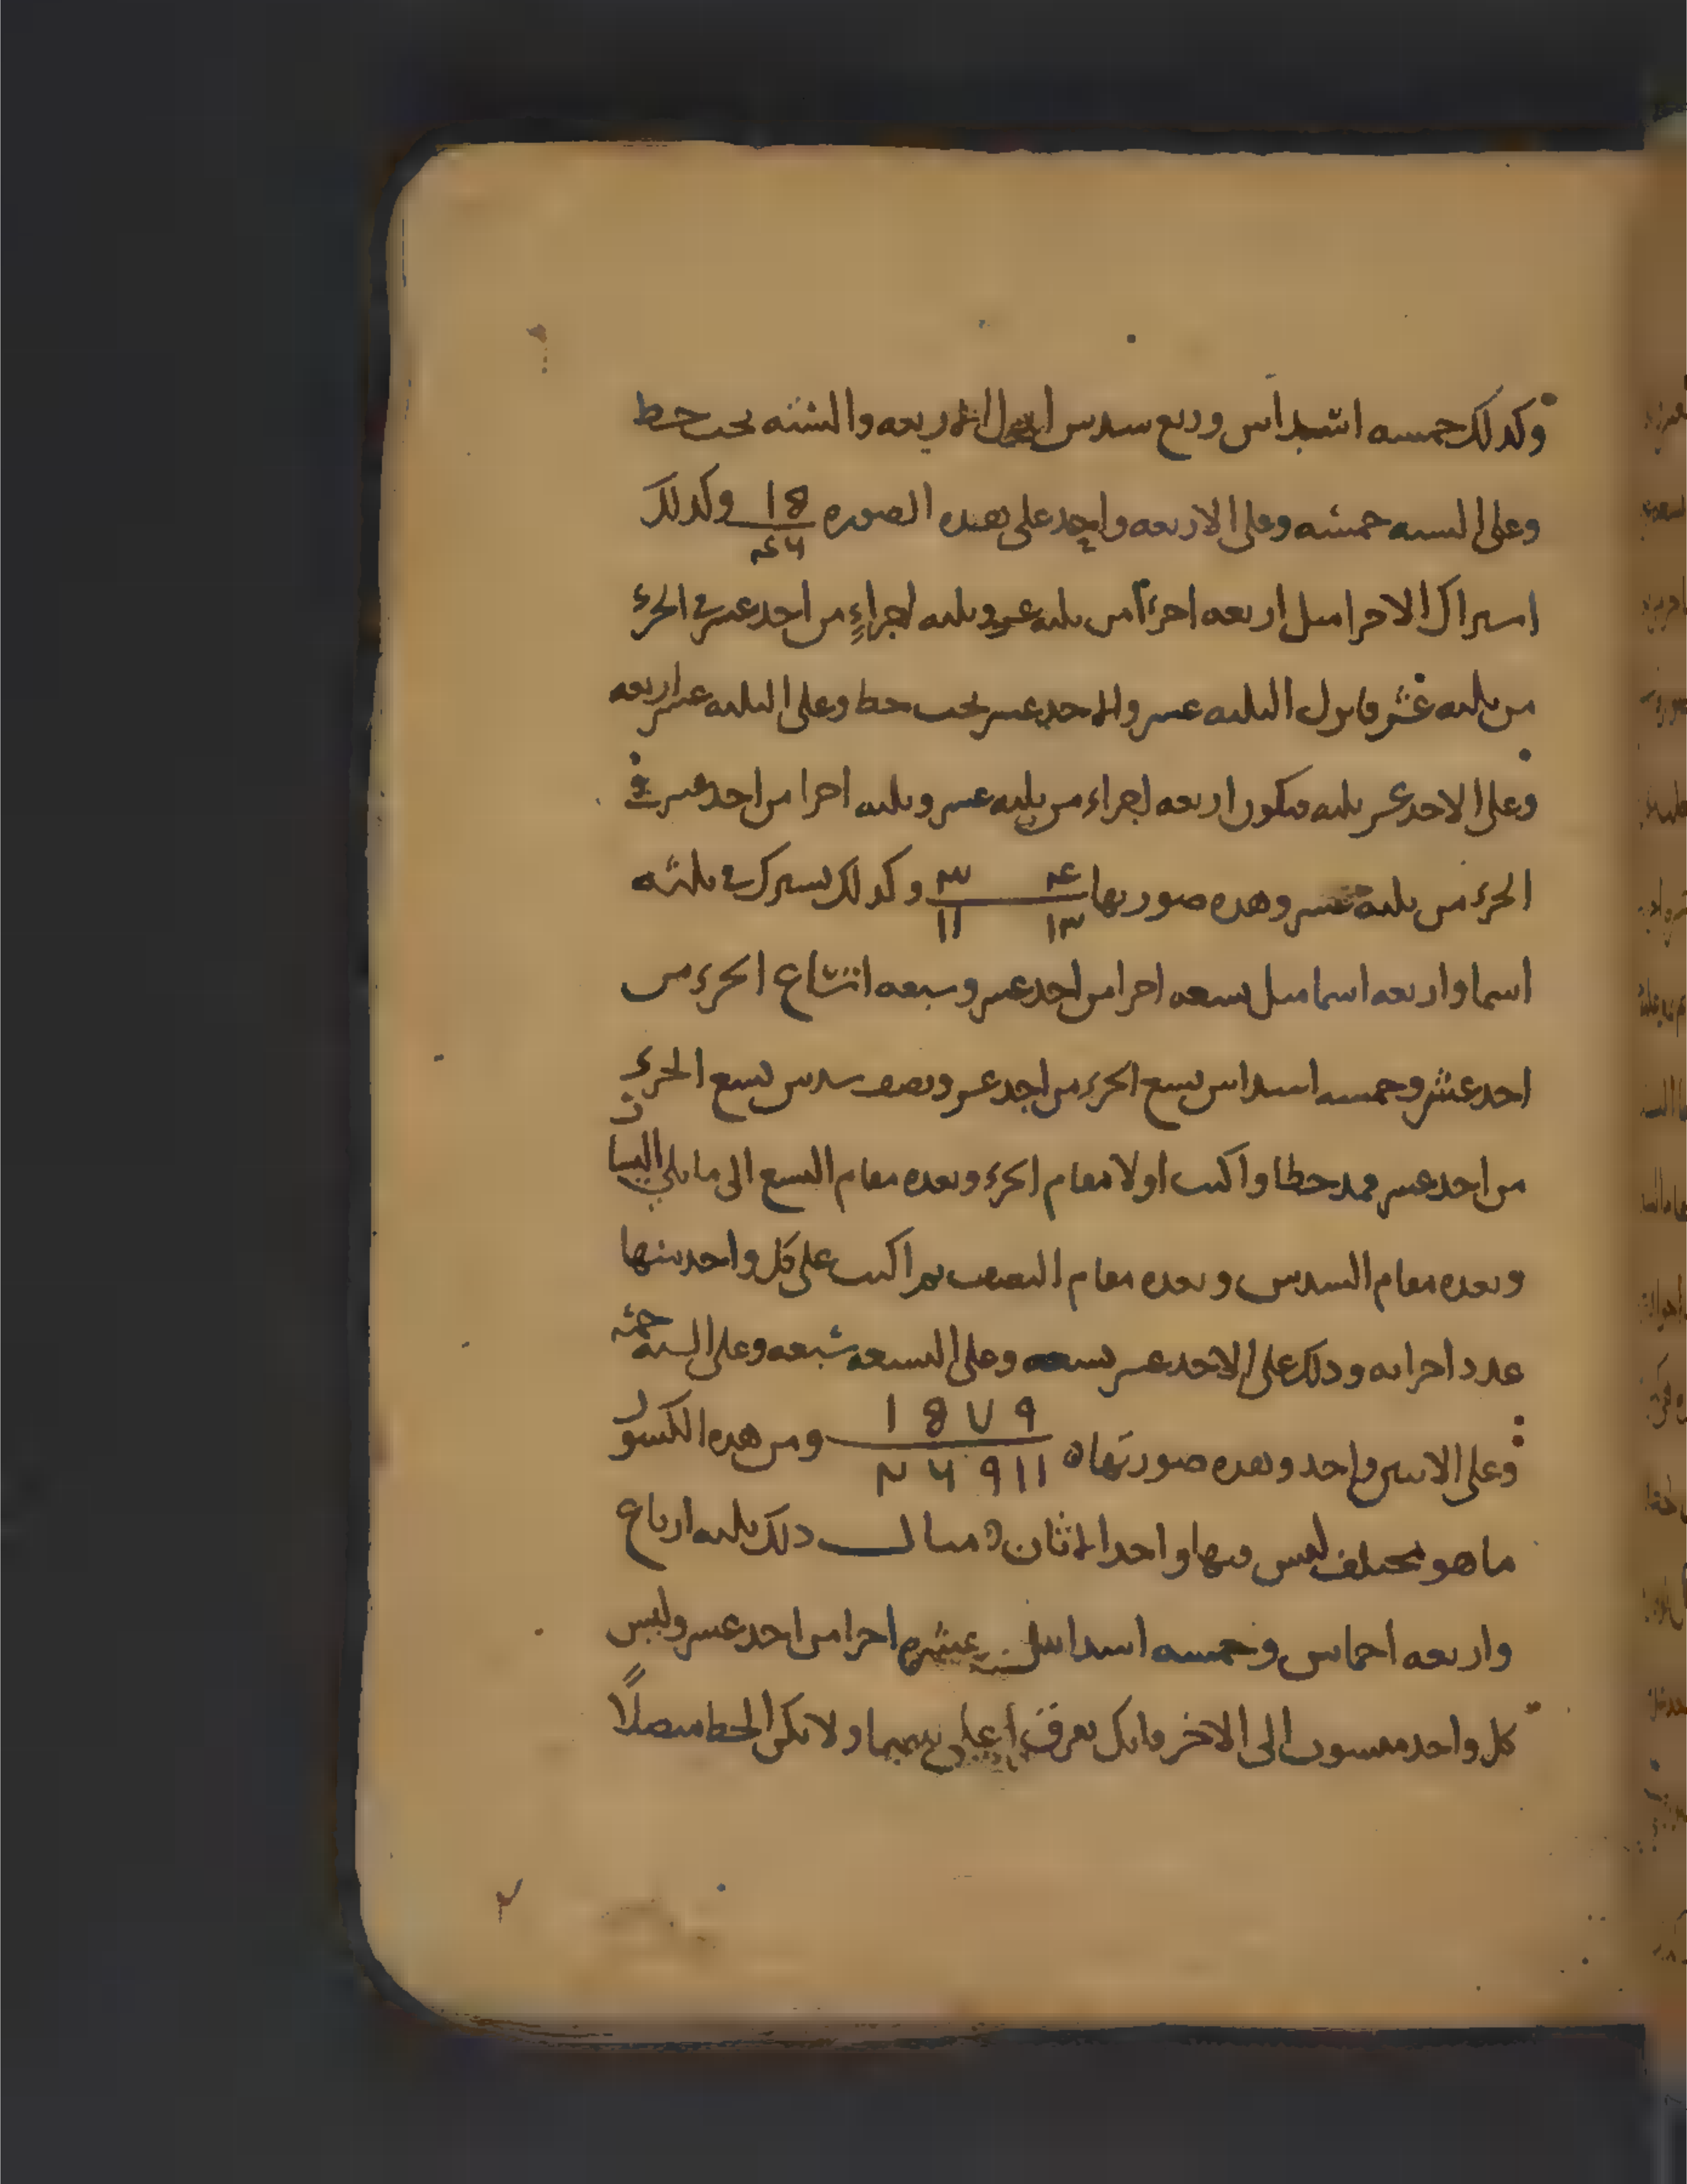 وكذلك خمسة اسداس وربع سدس انزل الاربعه والسته تحت خط
وعلى السته خمسه وعلى الاربعه واحد على هذه الصوره ١ 8 / ٤ ٦ وكذلك
اشتراك الاجزا مثل اربعه اجزآ من ثلثه عشر وثلثه اجزاءٍ من احد عشر في الجزء
من ثلثه عشر فانزل الثلثه عشر والاحد عشر تحت خط وعلى الثلثه عشر اربعه
وعلى الاحد عشر ثلثه فيكون اربعه اجزاء من ثلثه عشر وثلثه اجزا من احد عشر في
الجزء من ثلثة عشر وهذه صورتها ٣ ٤ / ١١ ١٣ وكذلك تشترك في ثلثه
اسما واربعه اسما مثل تسعه اجزا من احد عشر وسبعه اتساع الجزء من
احد عشر وخمسه اسداس تسع الجزء من احد عشر ونصف سدس تسع الجزء
من احد عشر فمد خطا واكتب اولا مقام الجزء وبعده مقام التسع الى ما يلي اليسار
وبعده مقام السدس وبعده مقام النصف ثم اكتب على كل واحد منها
عدد اجزائه وذلك على الاحد عشر تسعه وعلى التسعه سبعه وعلى السته خمسه
وعلى الاثنين واحد وهذه صورتها ٥ ١ 8 ٧ ٩ / ٢ ٦ ٩ ١١ ومن هذه الكسور
ما هو مختلف ليس فيها واحدا لاثان ٥ مثال ذلك ثلثه ارباع
واربعه اخماس وخمسه اسداس عشره اجزا من احد عشر وليس
كل واحد منسوب الى الاخر فانك تفرق بينهما ولا يكن الخط متصلاً